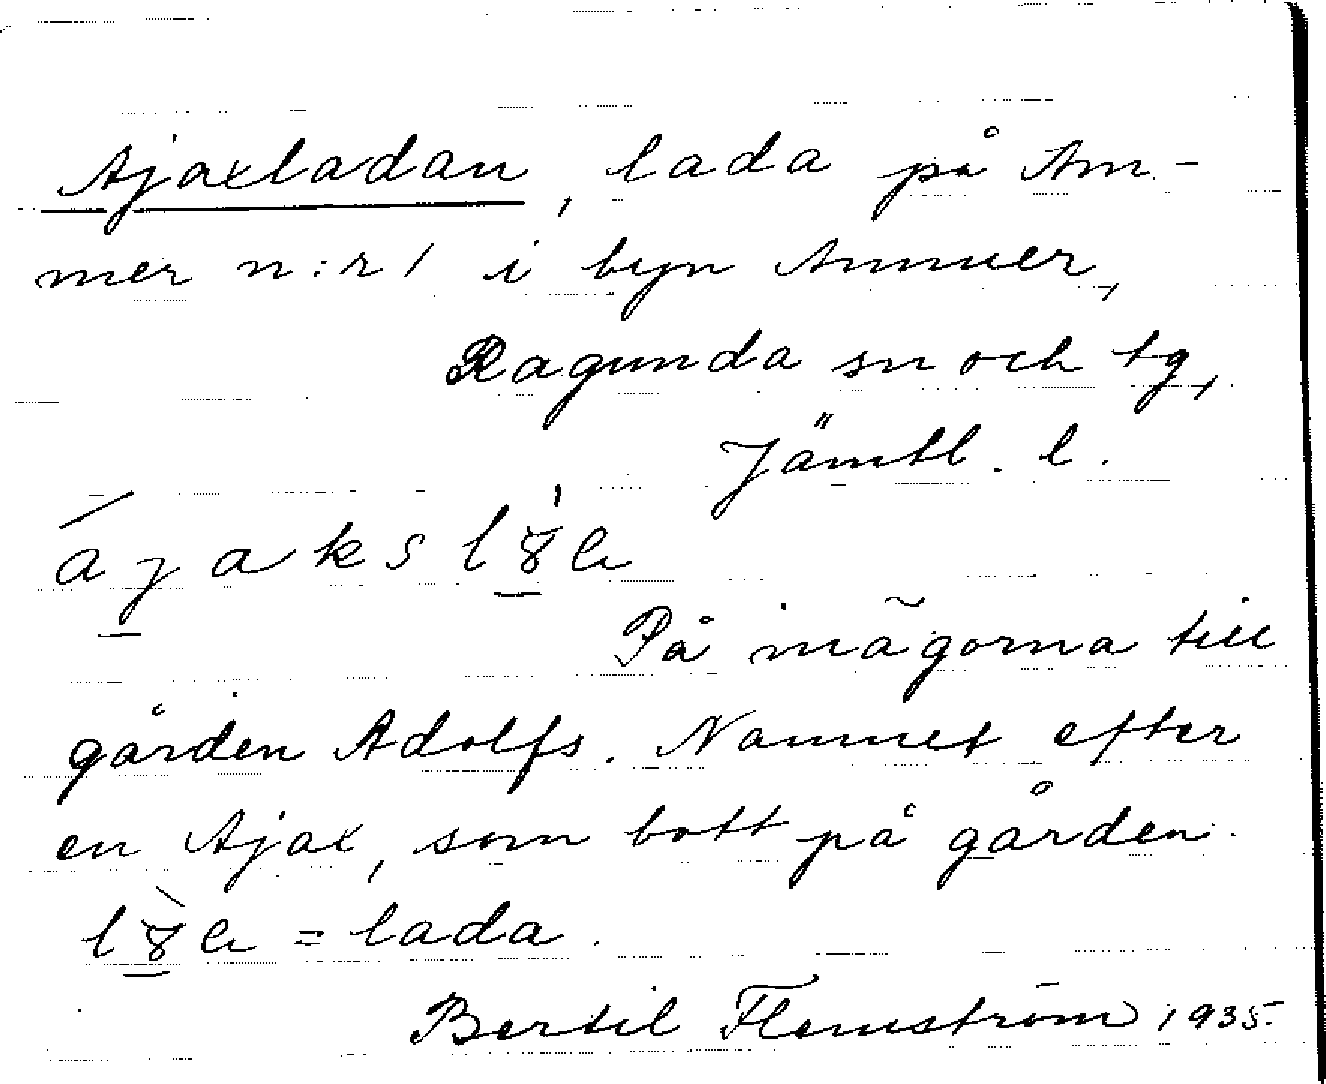 Ajaxladan, lada på Am-
mer n:r 1 i byn Ammer,
Ragunda sn och tg,
Jämtl. l.
ájaksl
På inägorna till
gården Adolfs. Namnet efter
en Ajax, som bott på gården.
= lada.
Bertil Flemström 1935.